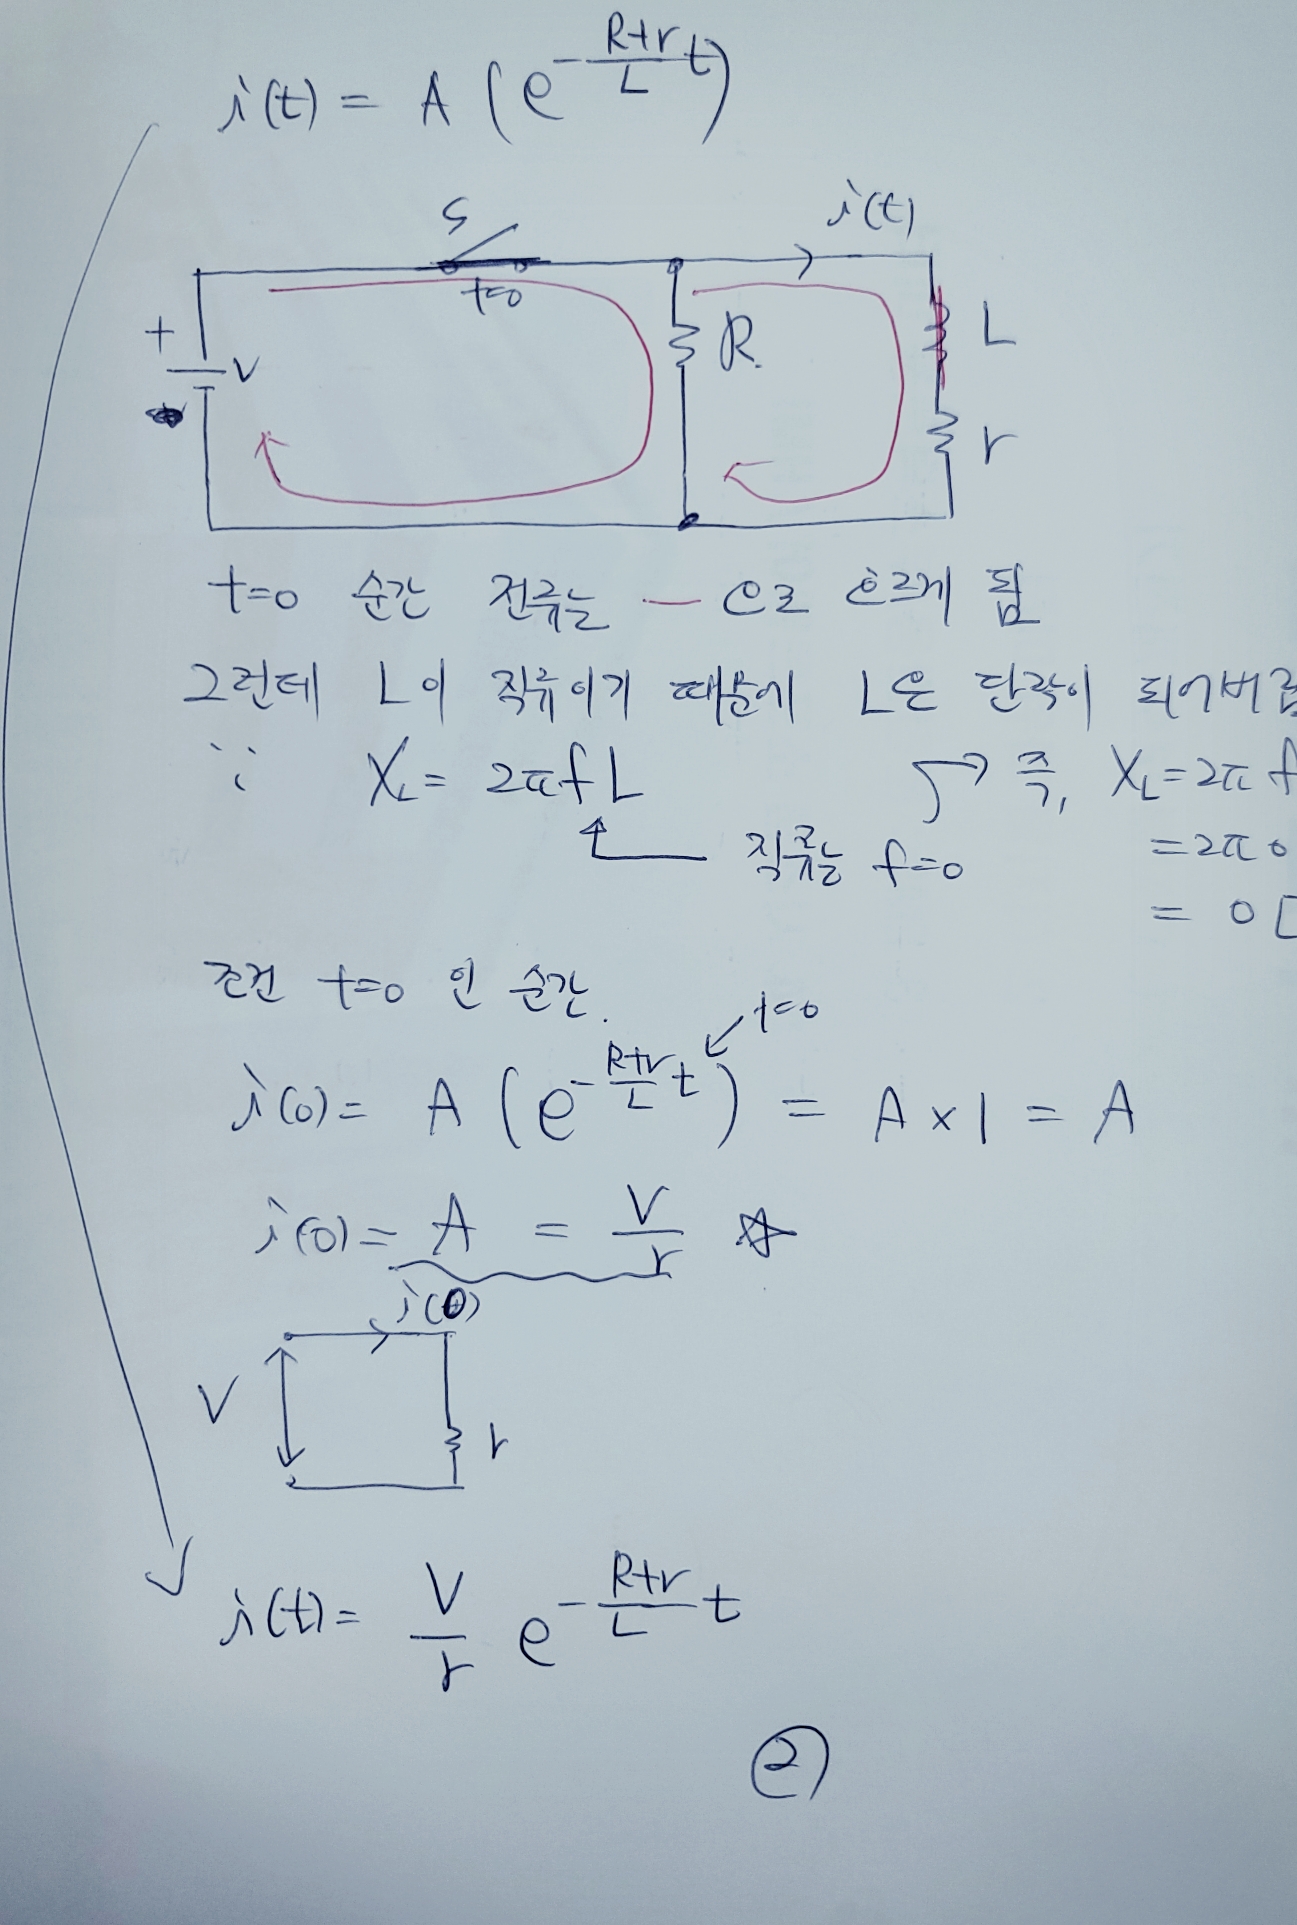 i(t) = A (e^{-\frac{R+r}{L}t})
S
i(t)
t=0
+
V
R
L
r
t=0 순간 전류는 — 으로 흐르게 됨
그런데 L이 직류이기 때문에 L은 단락이 되어버림
∵ X_L = 2πfL
직류는 f=0
즉, X_L=2πf
=2π0
= 0 [
조건 t=0 인 순간.
t=0
i(0) = A (e^{-\frac{R+r}{L}t}) = A×1 = A
i(0) = A = \frac{V}{r} ☆
i(0)
V
r
i(t) = \frac{V}{r} e^{-\frac{R+r}{L}t}
②